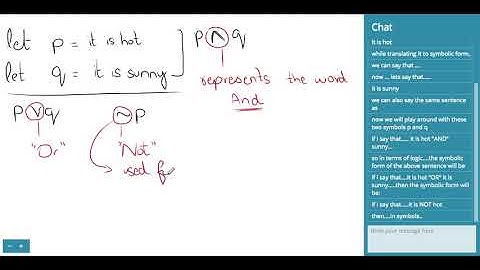 let p = it is hot
let q = it is sunny
p ∧ q
represents the word
And
p ∨ q
"Or"
~ p
"Not"
used fo
Chat
it is hot
while translating it to symbolic form,
we can say that ....
now ... lets say that......
it is sunny
we can also say the same sentence as
now we will play around with these two symbols p and q
if i say that.... it is hot "AND" sunny...
so in terms of logic....the symbolic form of the above sentence will be
if i say that....it is hot "OR" it is sunny.....then the symbolic form will be:
if i say that.....it is NOT hot
then....in symbols..
Write your message here